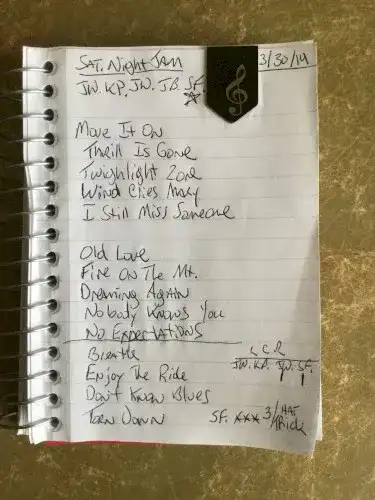 SAT. Night JAM 3/30/19
JW. KP. JW. JB. SF.
Move It On
Thrill Is Gone
Twighlight Zone
Wind Cries Mary
I Still Miss Someone
Old Love
Fire On The Mt.
Dreaming Again
Nobody Knows You
No Expectations
Breathe
L C R
JW. KP. JW. SF.
Enjoy The Ride
Don't Know Blues
Torn Down
SF. *** 3/HAT
TRick